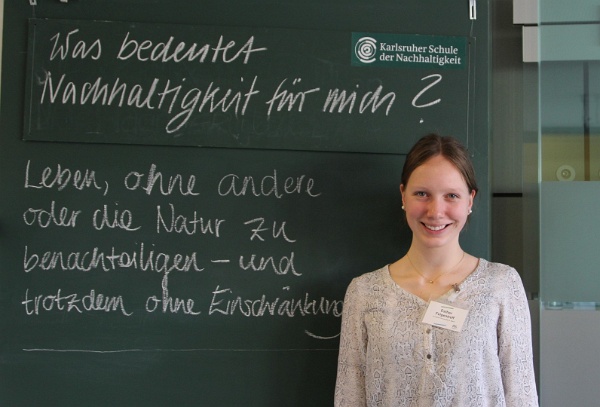 Was bedeutet
Nachhaltigkeit für mich?
Karlsruher Schule
der Nachhaltigkeit
Leben, ohne andere
oder die Natur zu
benachteiligen – und
trotzdem ohne Einschränkung